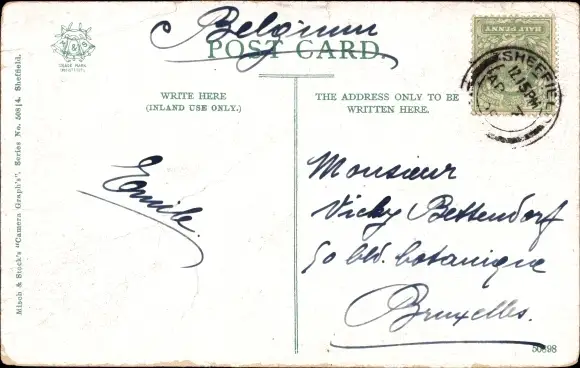 Belgium
POST CARD.
TRADE MARK
HALF PENNY
SHEFFIEL
12.15PM
AP 7
WRITE HERE
(INLAND USE ONLY.)
THE ADDRESS ONLY TO BE
WRITTEN HERE.
Emile.
Monsieur
Vicky Bettendorf
50 bld. botanique
Bruxelles.
50898
Misch & Stock's "Camera Graph's". Series No. 508/4. Sheffield.